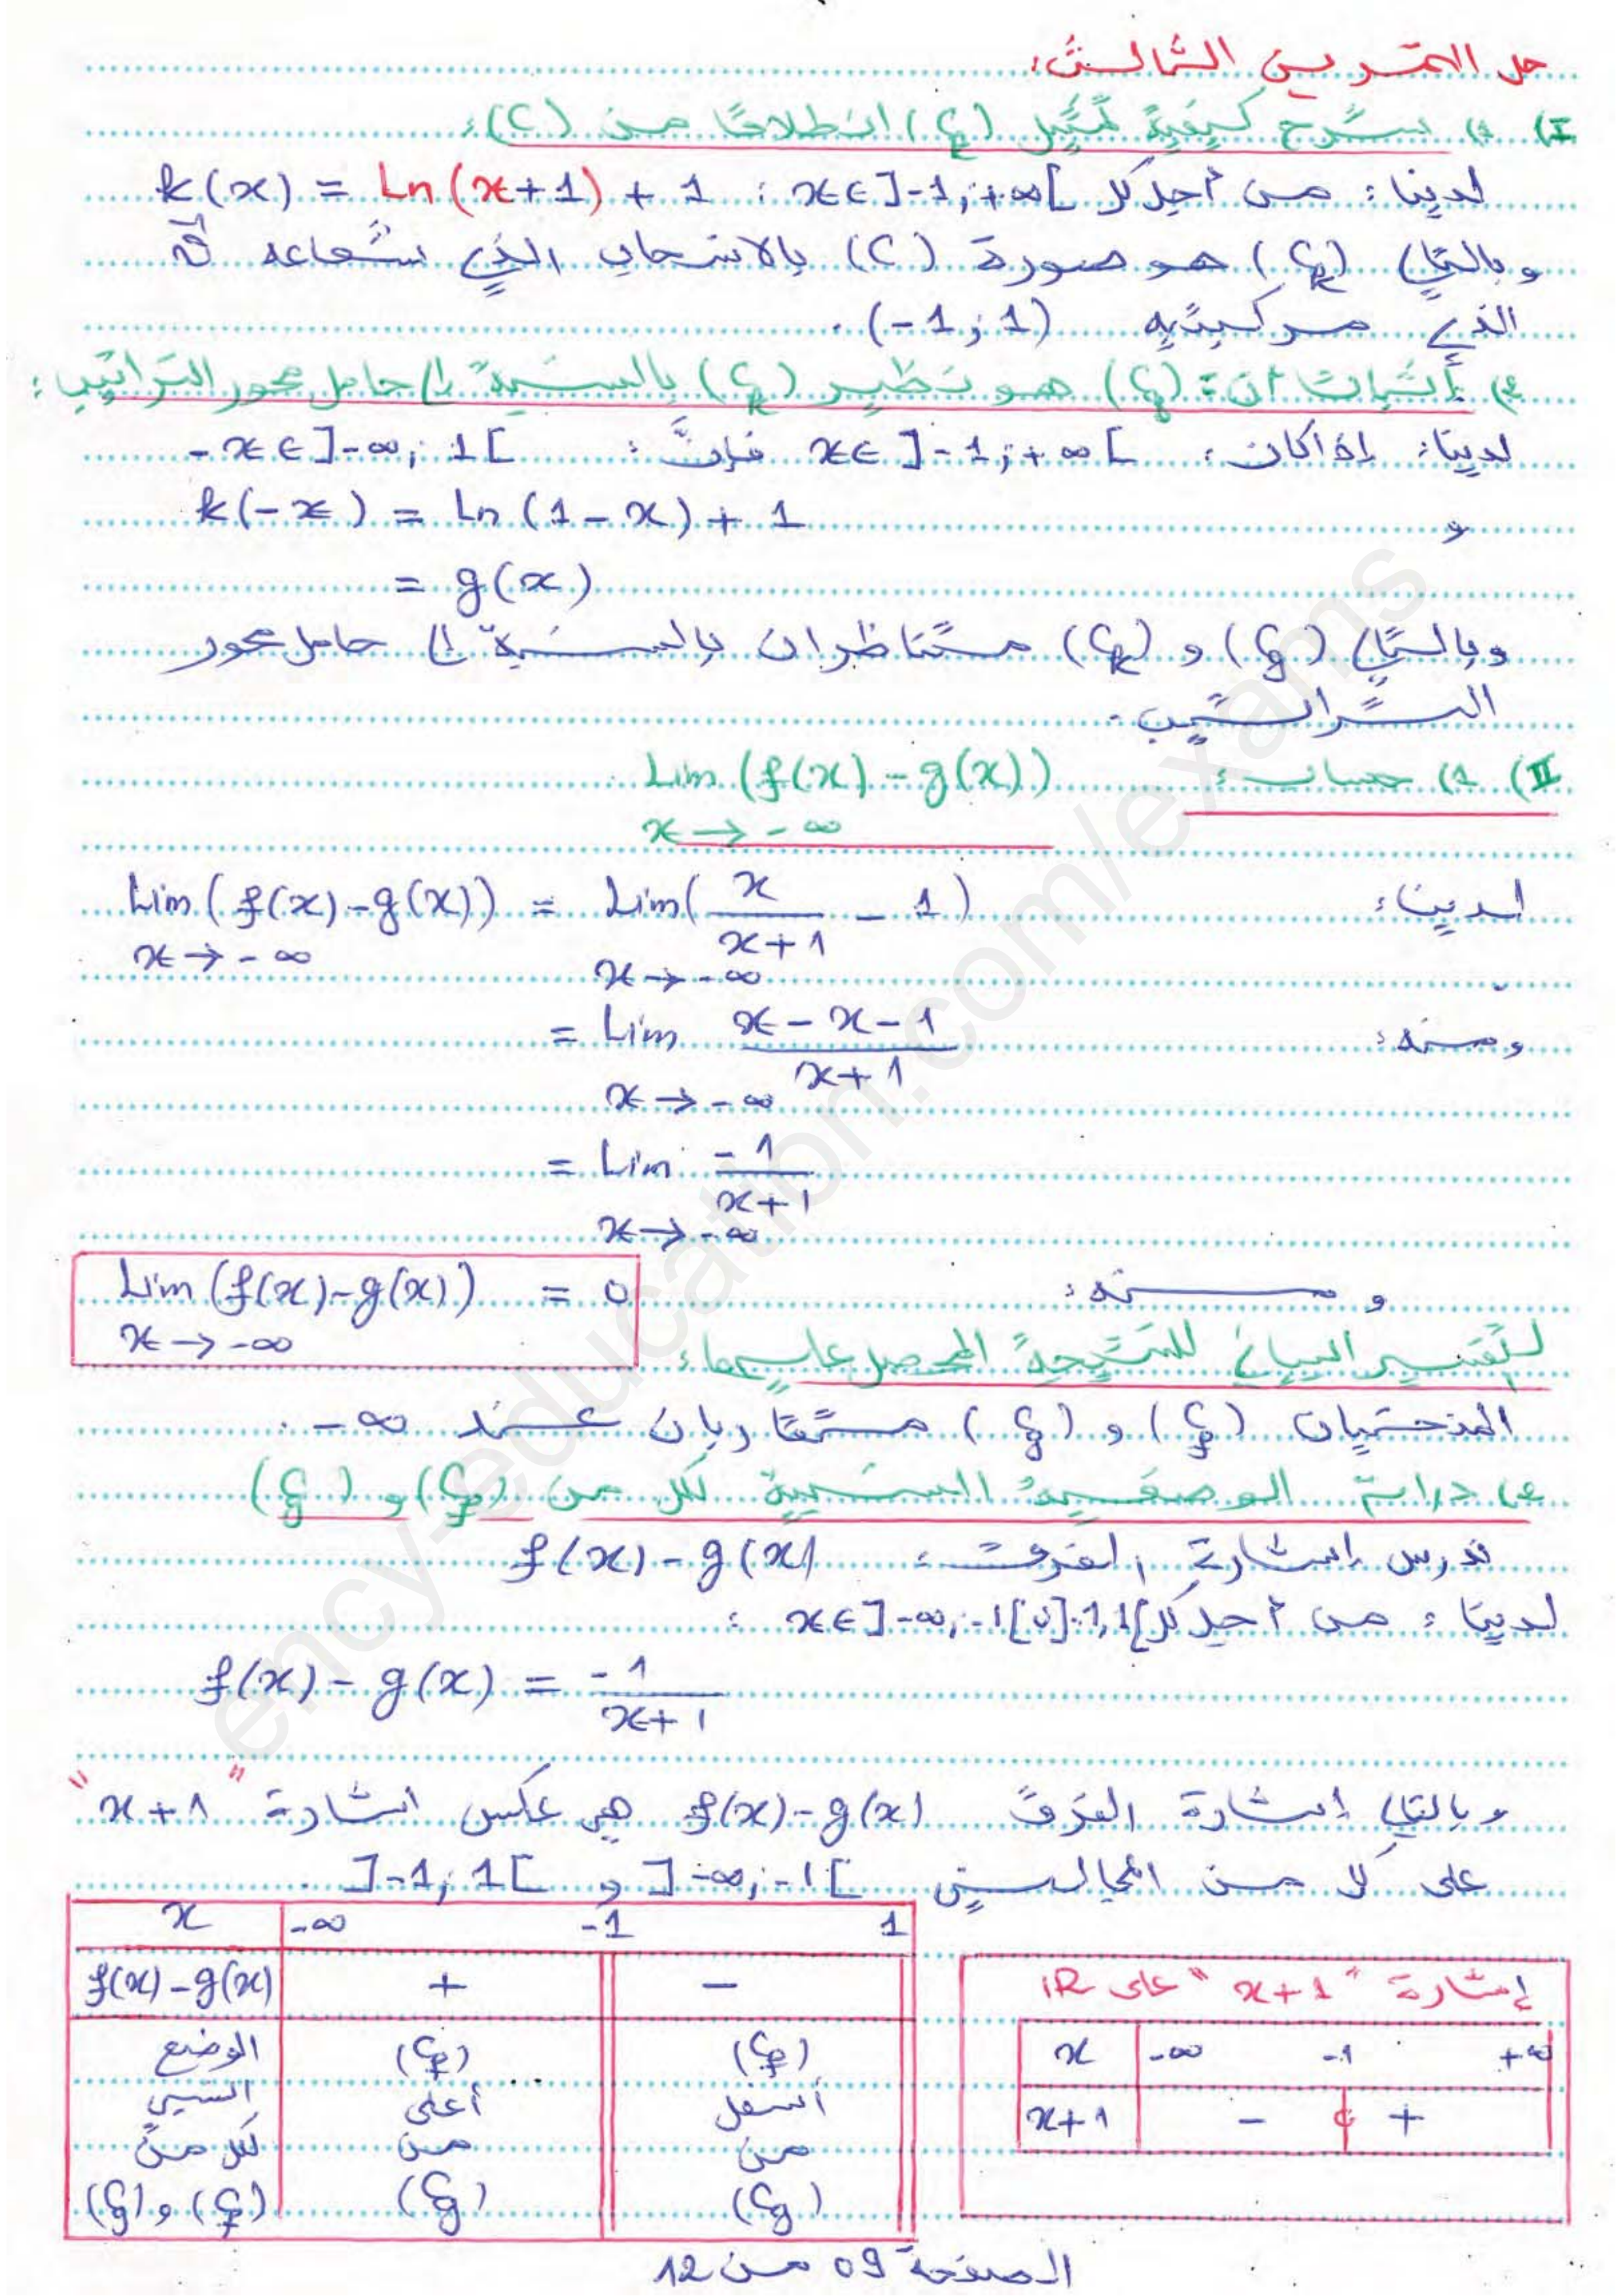 حل التمرين الثالث:
I) 1) شرح كيفية تمثيل (C_k) انطلاقا من (C):
لدينا: من أجل كل x∈]-1;+∞[ : k(x) = Ln(x+1) + 1
وبالتالي (C_k) هو صورة (C) بالانسحاب الذي شعاعه
الذي مركبتيه (-1;1).
2) إثبات أن: (C_g) هو نظير (C_k) بالنسبة إلى حامل محور التراتيب:
لدينا: إذا كان: x∈]-1;+∞[ فإنّ: -x∈]-∞;1[
و k(-x) = Ln(1-x) + 1
= g(x)
وبالتالي (C_g) و (C_k) متناظران بالنسبة إلى حامل محور
التراتيب.
II) 1) حساب: Lim (f(x)-g(x))
x→-∞
لدينا: Lim (f(x)-g(x)) = Lim( x/(x+1) - 1 )
x→-∞ x→-∞
ومنه: = Lim (x-x-1)/(x+1)
x→-∞
= Lim -1/(x+1)
x→-∞
ومنه: Lim (f(x)-g(x)) = 0
x→-∞
التفسير البياني للنتيجة المحصل عليها:
المنحنيان (C_f) و (C_g) متقاربان عند -∞.
2) دراسة الوضعية النسبية لكل من (C_f) و (C_g)
ندرس إشارة الفرق: f(x)-g(x)
لدينا: من أجل كل x∈]-∞;-1[∪]-1;1[ :
f(x)-g(x) = -1/(x+1)
وبالتالي إشارة الفرق f(x)-g(x) هي عكس اشارة "x+1"
على كلا من المجالين ]-∞;-1[ و ]-1;1[ .
x -∞ -1 1
f(x)-g(x) + -
الوضع (C_f) (C_f)
النسبي أعلى أسفل
لكل من من من
(C_f) و (C_g) (C_g) (C_g)
إشارة "x+1" على IR
x -∞ -1 +∞
x+1 - 0 +
الصفحة 09 من 12
ency-education.com/exams